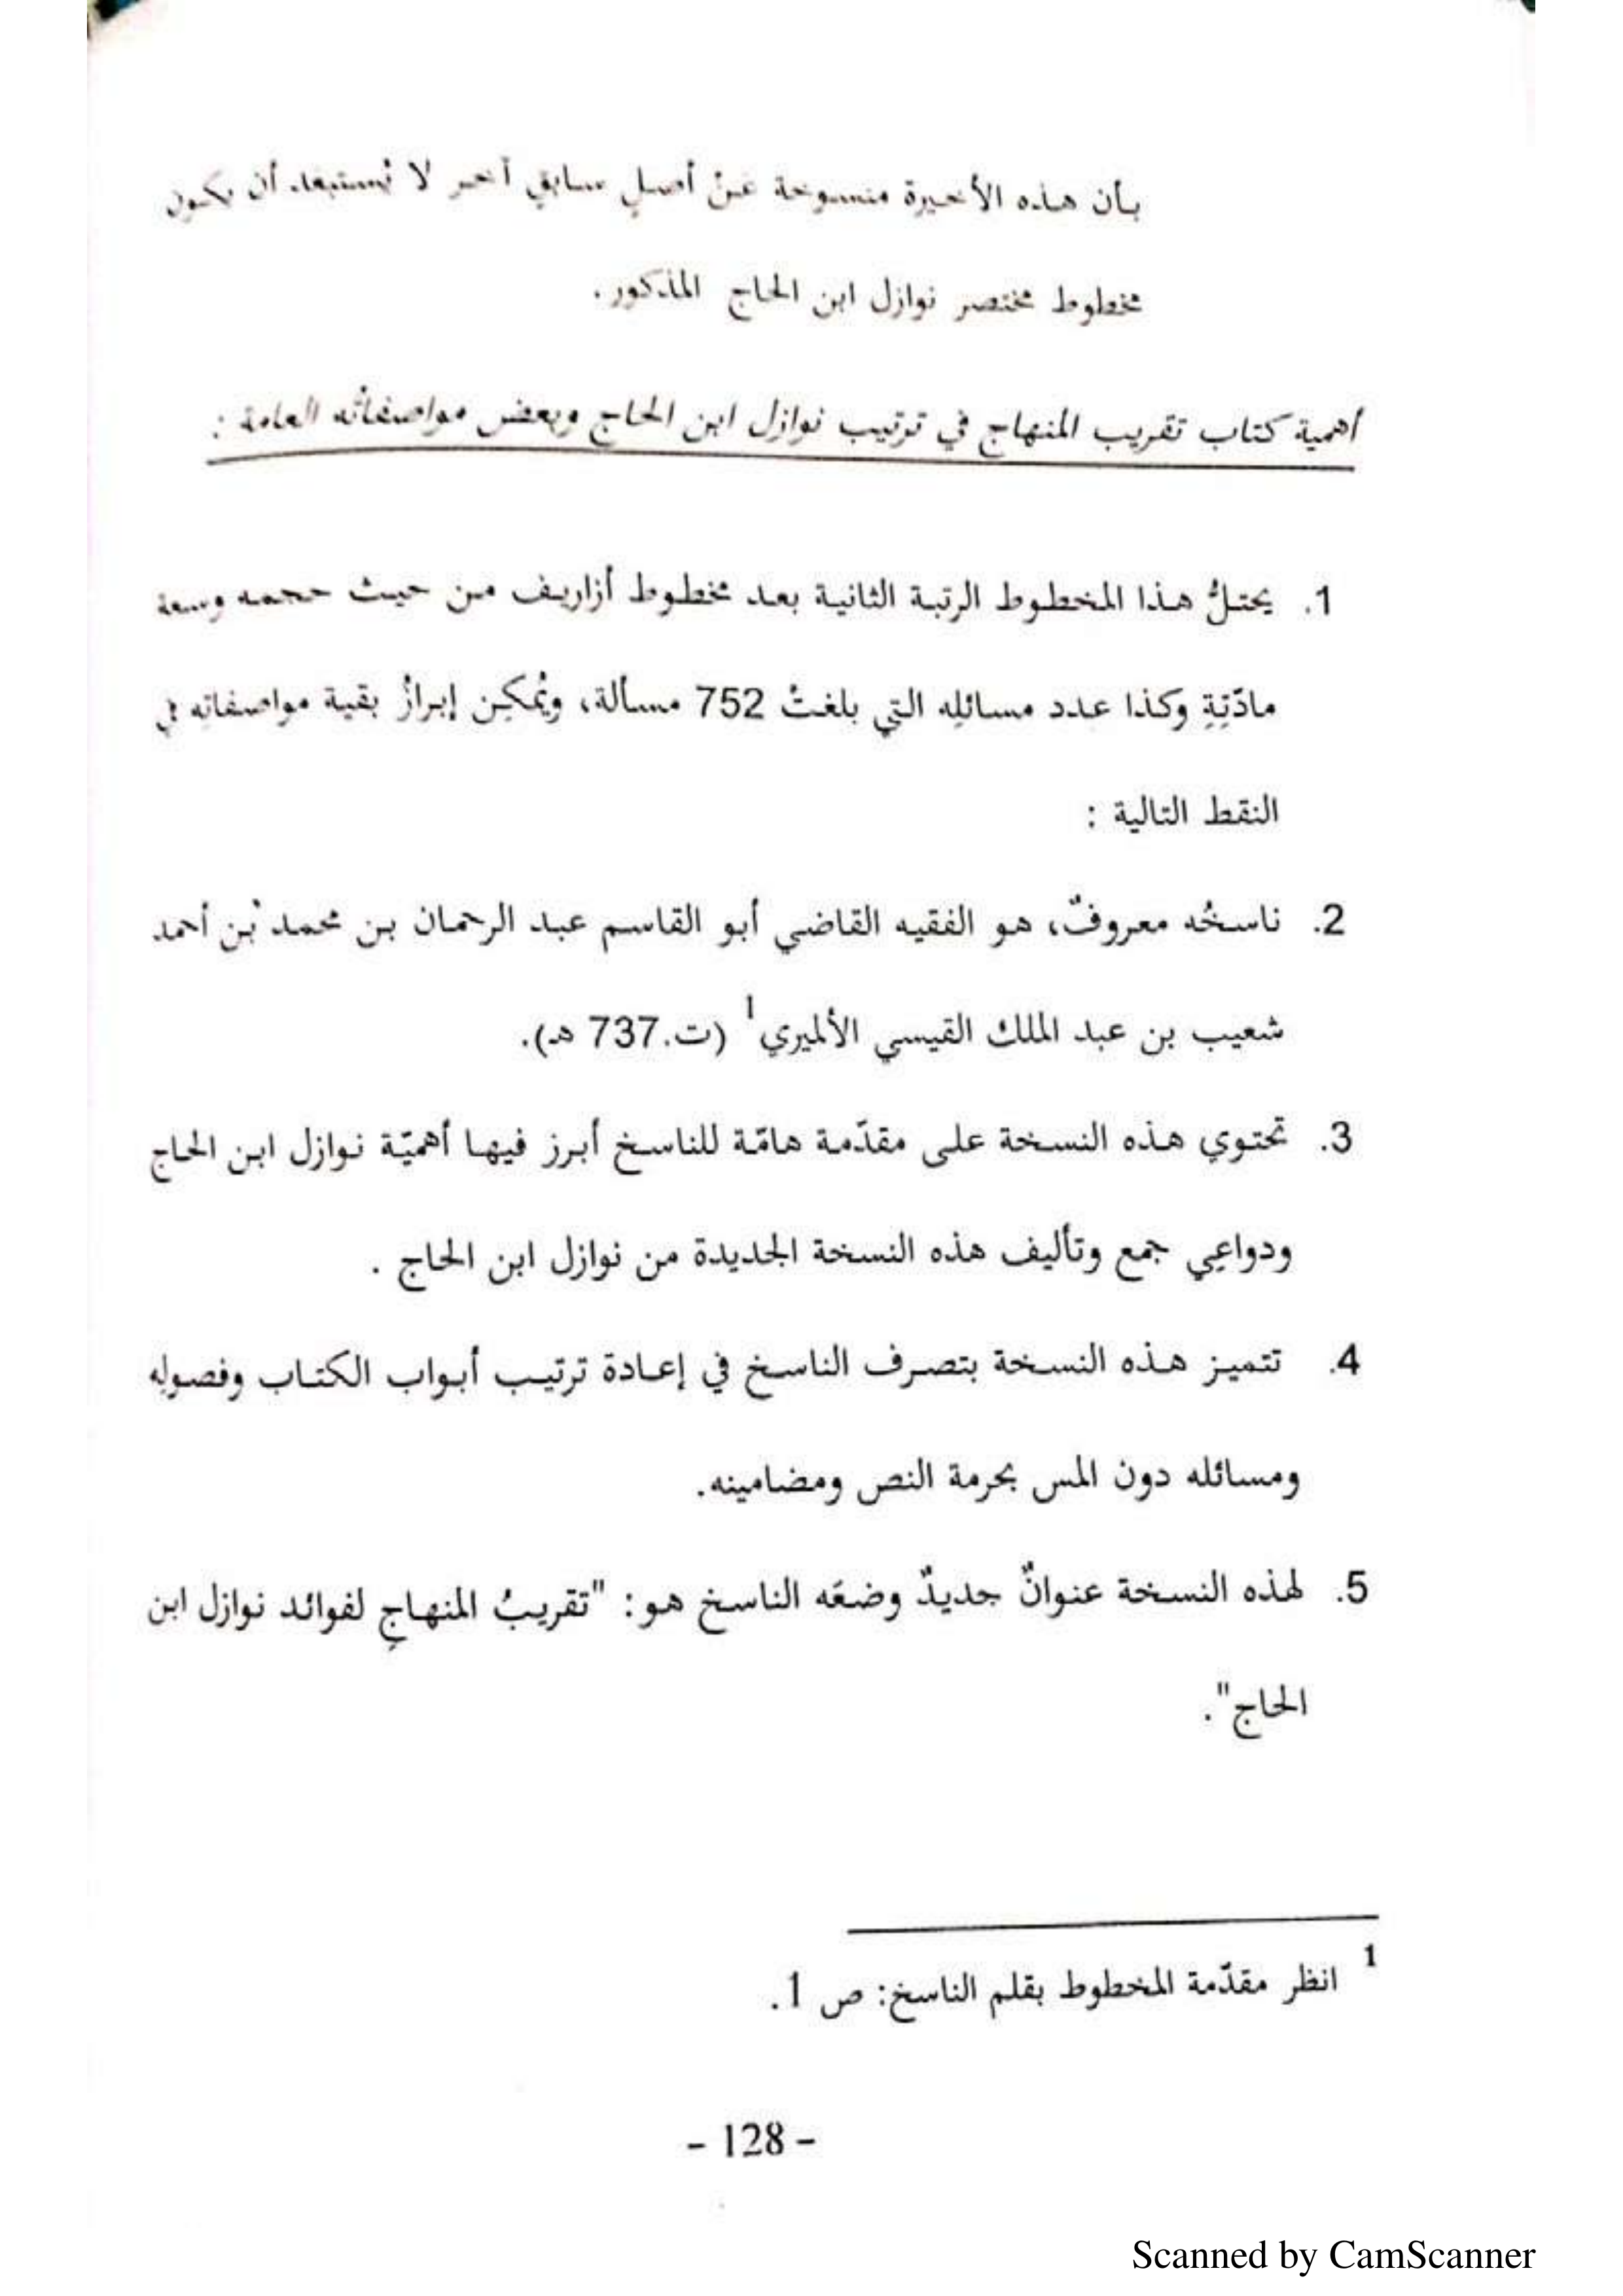 بأن هذه الأخيرة منسوخة عنْ أصلٍ سابقٍ آخر لا يُستبعد أن يكون
مخطوط مختصر نوازل ابن الحاج المذكور.
أهمية كتاب تقريب المنهاج في ترتيب نوازل ابن الحاج وبعض مواصفاته العامة :
1. يحتلُّ هذا المخطوط الرتبة الثانية بعد مخطوط أزاريف من حيث حجمه وسعة
مادّتِةِ وكذا عدد مسائلِه التي بلغتْ 752 مسألة، ويُمكِن إبرازُ بقية مواصفاتِه في
النقط التالية :
2. ناسخُه معروفٌ، هو الفقيه القاضي أبو القاسم عبد الرحمان بن محمد بن أحمد
شعيب بن عبد الملك القيسي الألميري1 (ت.737 هـ).
3. تحتوي هذه النسخة على مقدّمة هامّة للناسخ أبرز فيها أهميّة نوازل ابن الحاج
ودواعي جمع وتأليف هذه النسخة الجديدة من نوازل ابن الحاج .
4. تتميز هذه النسخة بتصرف الناسخ في إعادة ترتيب أبواب الكتاب وفصولِه
ومسائله دون المس بحرمة النص ومضامينه.
5. لهذه النسخة عنوانٌ جديدٌ وضعَه الناسخ هو: "تقريبُ المنهاجِ لفوائد نوازل ابن
الحاج".
1 انظر مقدّمة المخطوط بقلم الناسخ: ص 1.
- 128 -
Scanned by CamScanner